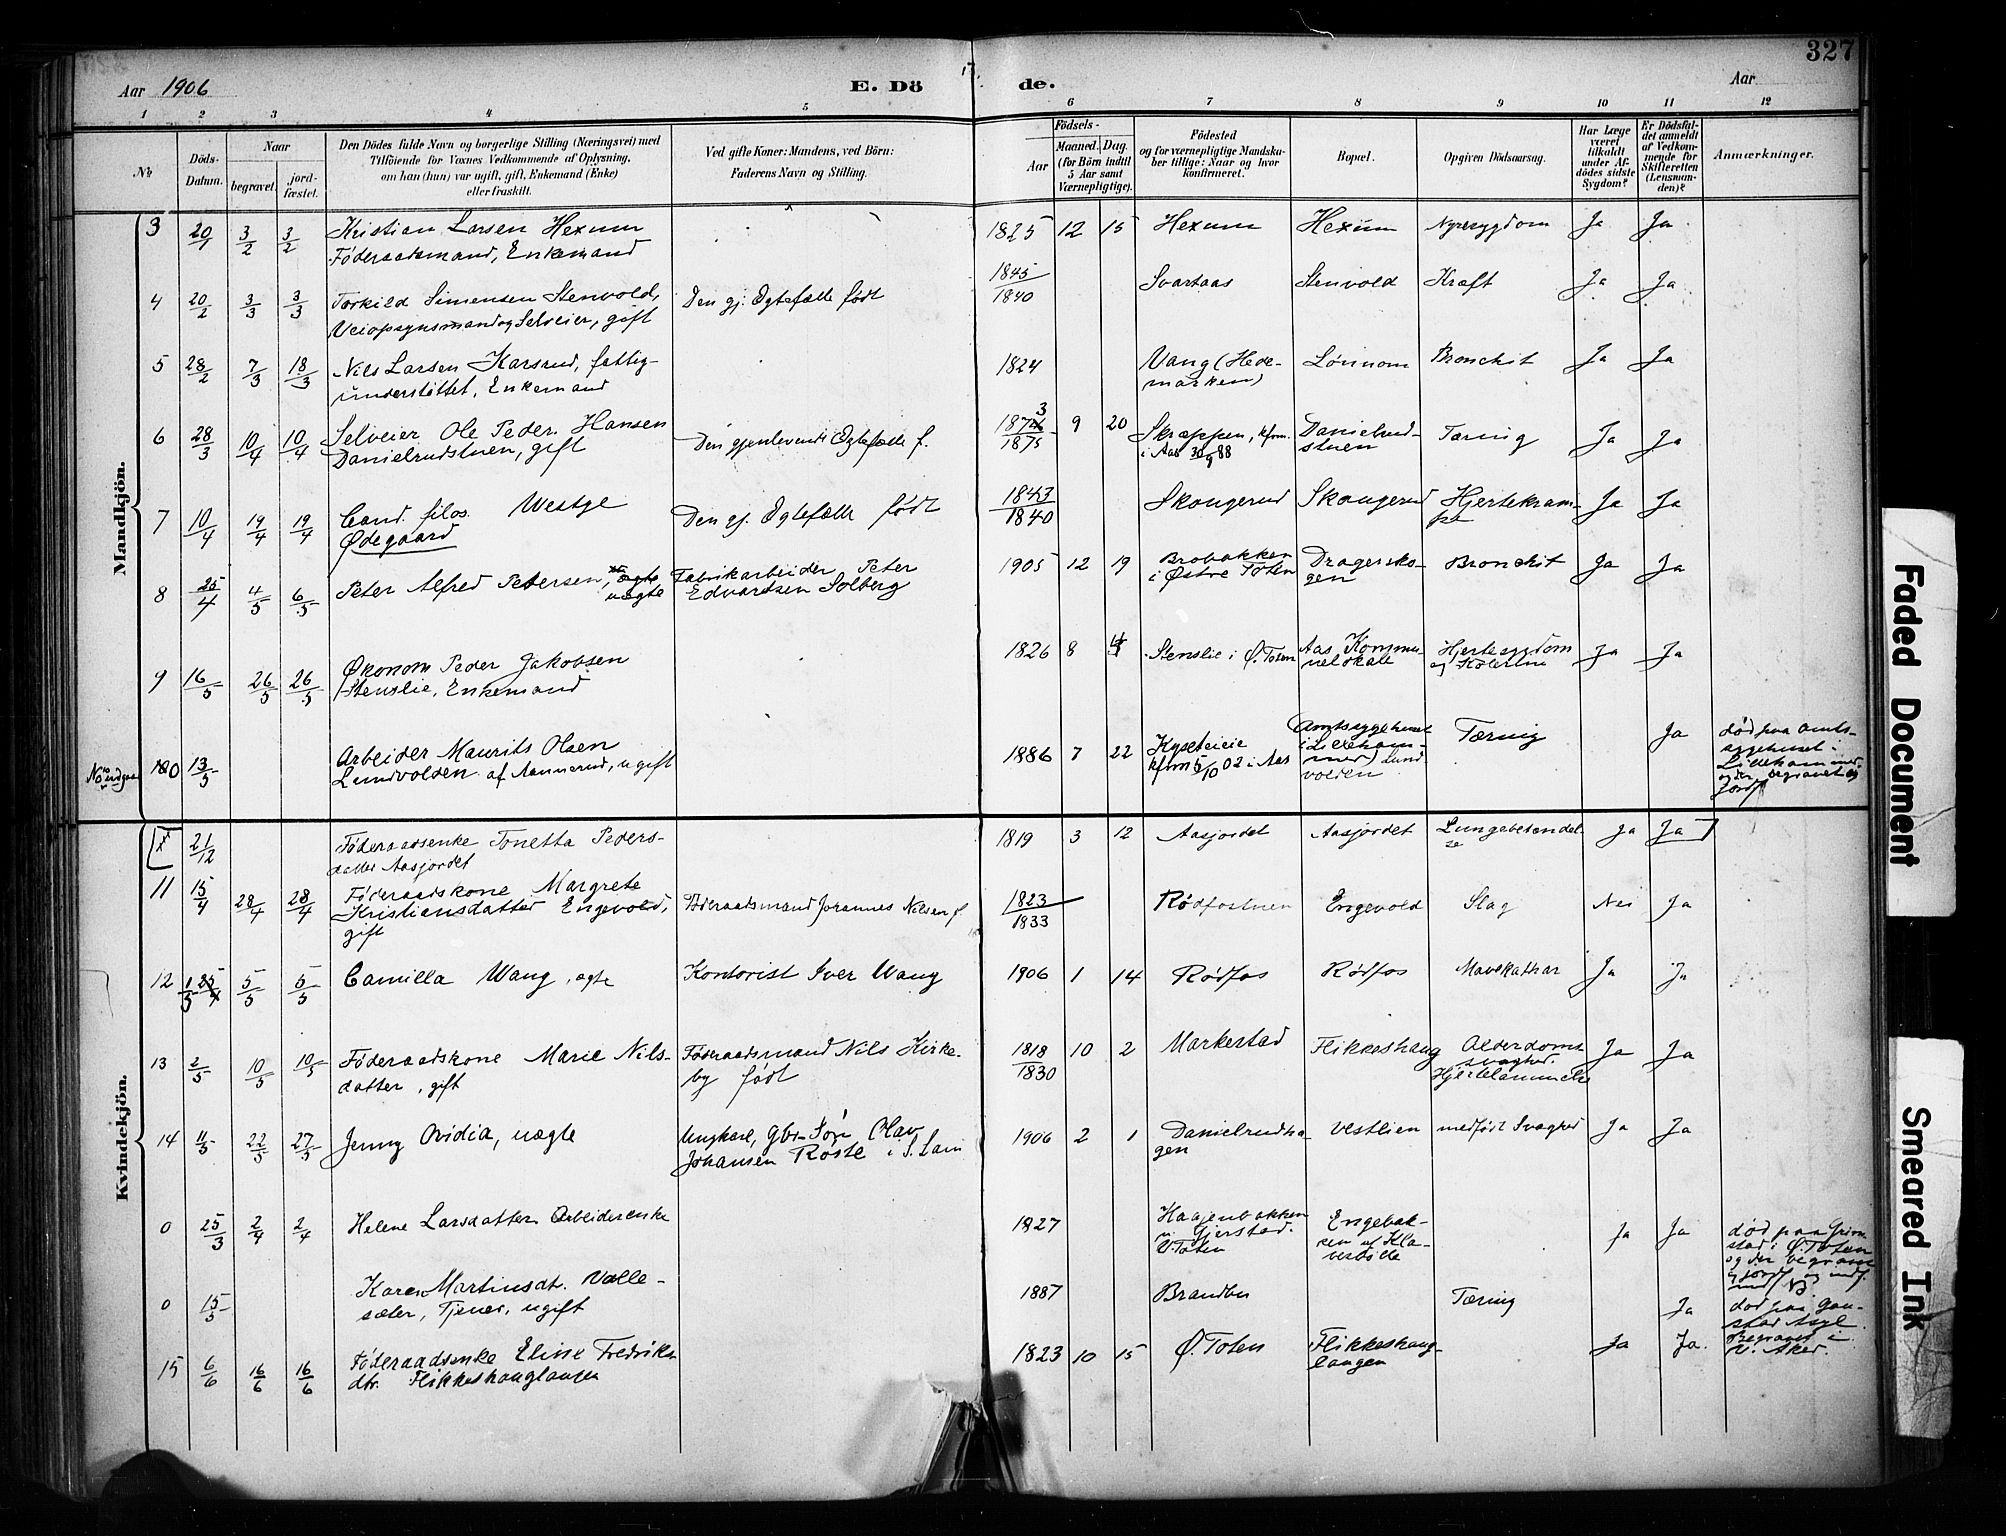 327
Aar 1906 E. Dö de. Aar
1 2 3 4 5 6 7 8 9 10 11 12
No.
Döds-Datum.
Naar
begravet.
jord-fæstet.
Den Dödes fulde Navn og borgerlige Stilling (Næringsvei) med
Tilföiende for Voxnes Vedkommende af Oplysning,
om han (hun) var ugift, gift, Enkemand (Enke)
eller fraskilt.
Ved gifte Koner: Mandens, ved Börn:
Faderens Navn og Stilling.
Födsels-
Aar
Maaned. Dag.
(for Börn indtil
5 Aar samt
Værnepligtige).
Födested
og for værnepligtige Mandska-
ber tillige: Naar og hvor
konfirmeret.
Bopæl.
Opgiven Dödsaarsag.
Har Læge
været
tilkaldt
under Af-
dödes sidste
Sygdom?
Er Dödsfal-
det anmeldt
af Vedkom-
mende for
Skifteretten
(Lensman-
den)?
Anmærkninger.
Mandkjön.
3 20/1 3/2 3/2 Kristian Larsen Hexum
Föderaadsmand, Enkemand
1825 12 15 Hexum Hexum Nyresygdom Ja Ja
4 20/2 3/3 3/3 Torkild Simensen Stenvold,
Veiopsynsmand og Selveier, gift
Den gj. Ægtefælle født
1845/1840 Svartaas Stenvold Kræft Ja Ja
5 28/2 7/3 18/3 Nils Larsen Karsrud, fattig-
understöttet, Enkemand
1824 Vang (Hede-
marken) Lönnom Bronchit Ja Ja
6 28/3 10/4 10/4 Selveier Ole Peder Hansen
Danielrudstuen, gift
Den gjenlevende Ægtefælle f.
1873/1875 9 20 Skræppen, kfrm.
i Aas 30/9 88
Danielrud-
stuen Tæring Ja Ja
7 10/4 19/4 19/4 Cand. filos. Westye
Ødegaard
Den gj. Ægtefælle født
1843/1840 Skougerud Skougerud Hjertekram-
pe Ja Ja
8 25/4 4/5 6/5 Peter Alfred Petersen, uægte
Fabrikarbeider Peter
Edvardsen Solberg
1905 12 19 Brobakken
i Østre Toten
Dragersko-
gen Bronchit Ja Ja
9 16/5 26/5 26/5 Økonom Peder Jakobsen
Stenslie, Enkemand
1826 8 Stenslie i Ø. Toten Aas Kommu-
nelokale
Hjertesygdom
og Ja Ja
10 13/5 Arbeider Maurits Olsen
Lundvolden af Aannerud, ugift
1886 7 22
kfrm 5/10 02 i Aas
(Amtssygehuset
i Lilleham-
mer) Lund-
volden
Tæring Ja
død paa Amts-
sygehuset i
Lillehammer
og der begravet og
jordf.
Kvindekjön.
21/12 Föderaadsenke Tonetta Peders-
datter Aasjordet
1819 3 12 Aasjordet Aasjordet Lungebetændel-
se Ja Ja
11 15/4 28/4 28/4 Föderaadskone Margrete
Kristiansdatter Engevold,
gift
Föderaadsmand Johannes Nilsen f.
1823/1833 Rødfostuen Engevold Slag Nei Ja
12 1/5 5/5 5/5 Camilla Wang, ægte
Kontorist Iver Wang
1906 1 14 Rødfos Rødfos Mavekathar Ja Ja
13 2/5 10/5 10/5 Föderaadskone Marie Nils-
datter, gift
Föderaadsmand Nils Kirke-
by født
1818/1830 10 2 Markestad Flikkeshaug Alderdoms-
svaghed.
Hjertelammelse Ja Ja
14 11/5 22/5 27/5 Jenny Ovidia, uægte
Ungkarl, Gbr. Søn Olav
Johansen Røste i S. Land
1906 2 1 Danielrudha-
gen Vestlien medfødt Svaghed Ja Ja
0 25/3 2/4 2/4 Helene Larsdatter Arbeiderenke
1827 Haajenbakken
u. Gjerstad.
V. Toten
Engebak-
ken
Ja Ja
død paa
i Ø. Toten
og der begravet
0 15/5 Karen Martinsdt. Valle-
sæter, Tjener, ugift
1887 Brandbu Tæring Ja
død paa Gau-
stad Asyl.
Begravet i
V. Aker.
15 6/6 16/6 16/6 Föderaadsenke Eline Fredriks
dtr. Flikkeshauglangen
1823 10 15 Ø. Toten Flikkeshaug-
langen Ja Ja
Faded Document
Smeared Ink